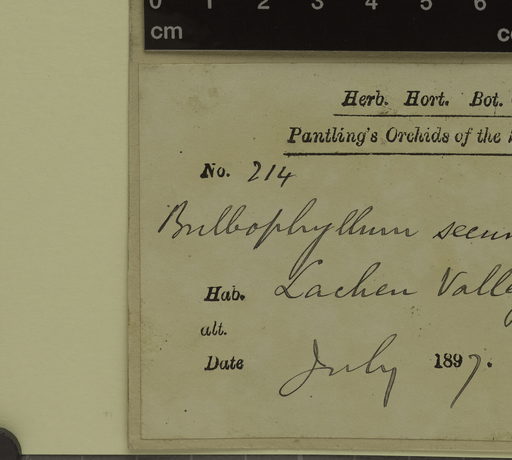 0 1 2 3 4 5 6
cm
Herb. Hort. Bot.
Pantling's Orchids of the
No. 214
Bulbophyllum secun
Hab. Lachen Valle
alt.
Date July 1897.